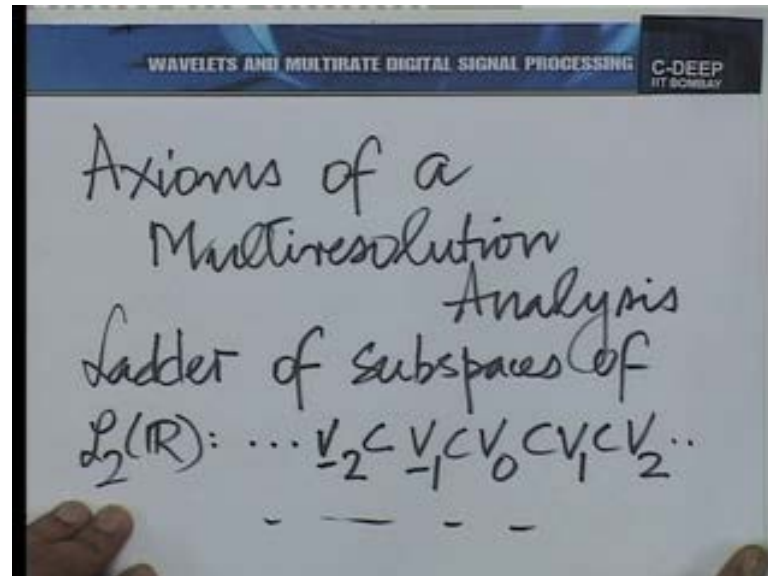 WAVELETS AND MULTIRATE DIGITAL SIGNAL PROCESSING
C-DEEP
IIT BOMBAY
Axioms of a
Multiresolution
Analysis
Ladder of subspaces of
L₂(ℝ): ... V₋₂ ⊂ V₋₁ ⊂ V₀ ⊂ V₁ ⊂ V₂ ..